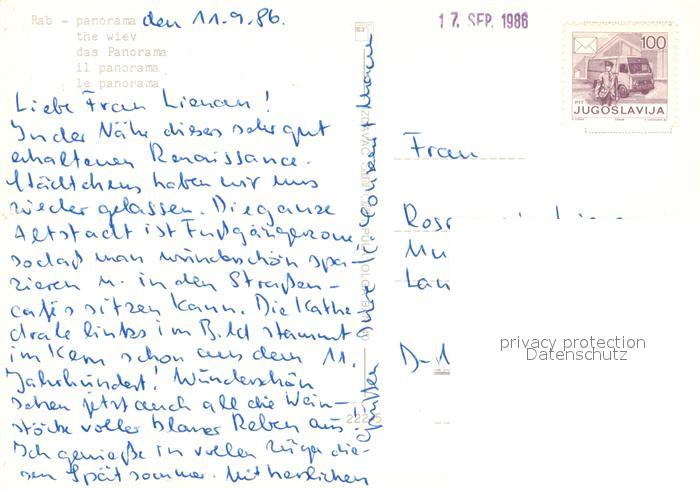 Rab - panorama den 11.9.86.
the wiev
das Panorama
il panorama
le panorama
Liebe Frau Lienau!
In der Nähe dieses sehr gut
erhaltenen Renaissance-
städtchens haben wir uns
nieder gelassen. Die ganze
Altstadt ist Fußgängerzone
sodaß man wunderschön spa-
zieren u. in den Straßen-
cafés sitzen kann. Die Kathe
drale links im Bild stammt
im Kern schon aus dem 11.
Jahrhundert! Wunderschön
sehen jetzt auch all die Wein-
stöcke voller blauer Reben aus!
Ich genieße in vollen Zügen die-
sen Spätsommer. Mit herzlichen
Grüßen Ihre
17. SEP. 1986
100
PTT
JUGOSLAVIJA
Frau
Mu
Lan
D-
privacy protection
Datenschutz